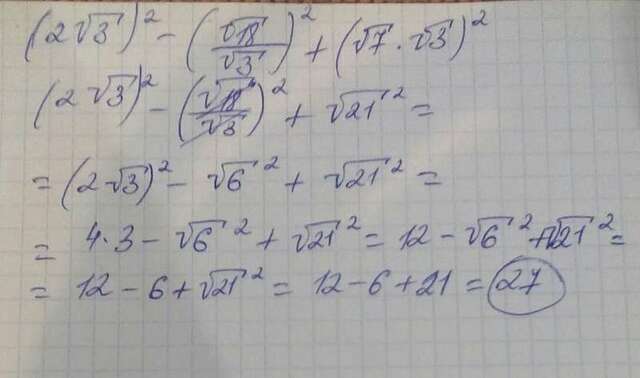 (2√3)² − (√18/√3)² + (√7 · √3)²
(2√3)² − (√18/√3)² + √21² =
= (2√3)² − √6² + √21² =
= 4·3 − √6² + √21² = 12 − √6² + √21² =
= 12 − 6 + √21² = 12 − 6 + 21 = 27